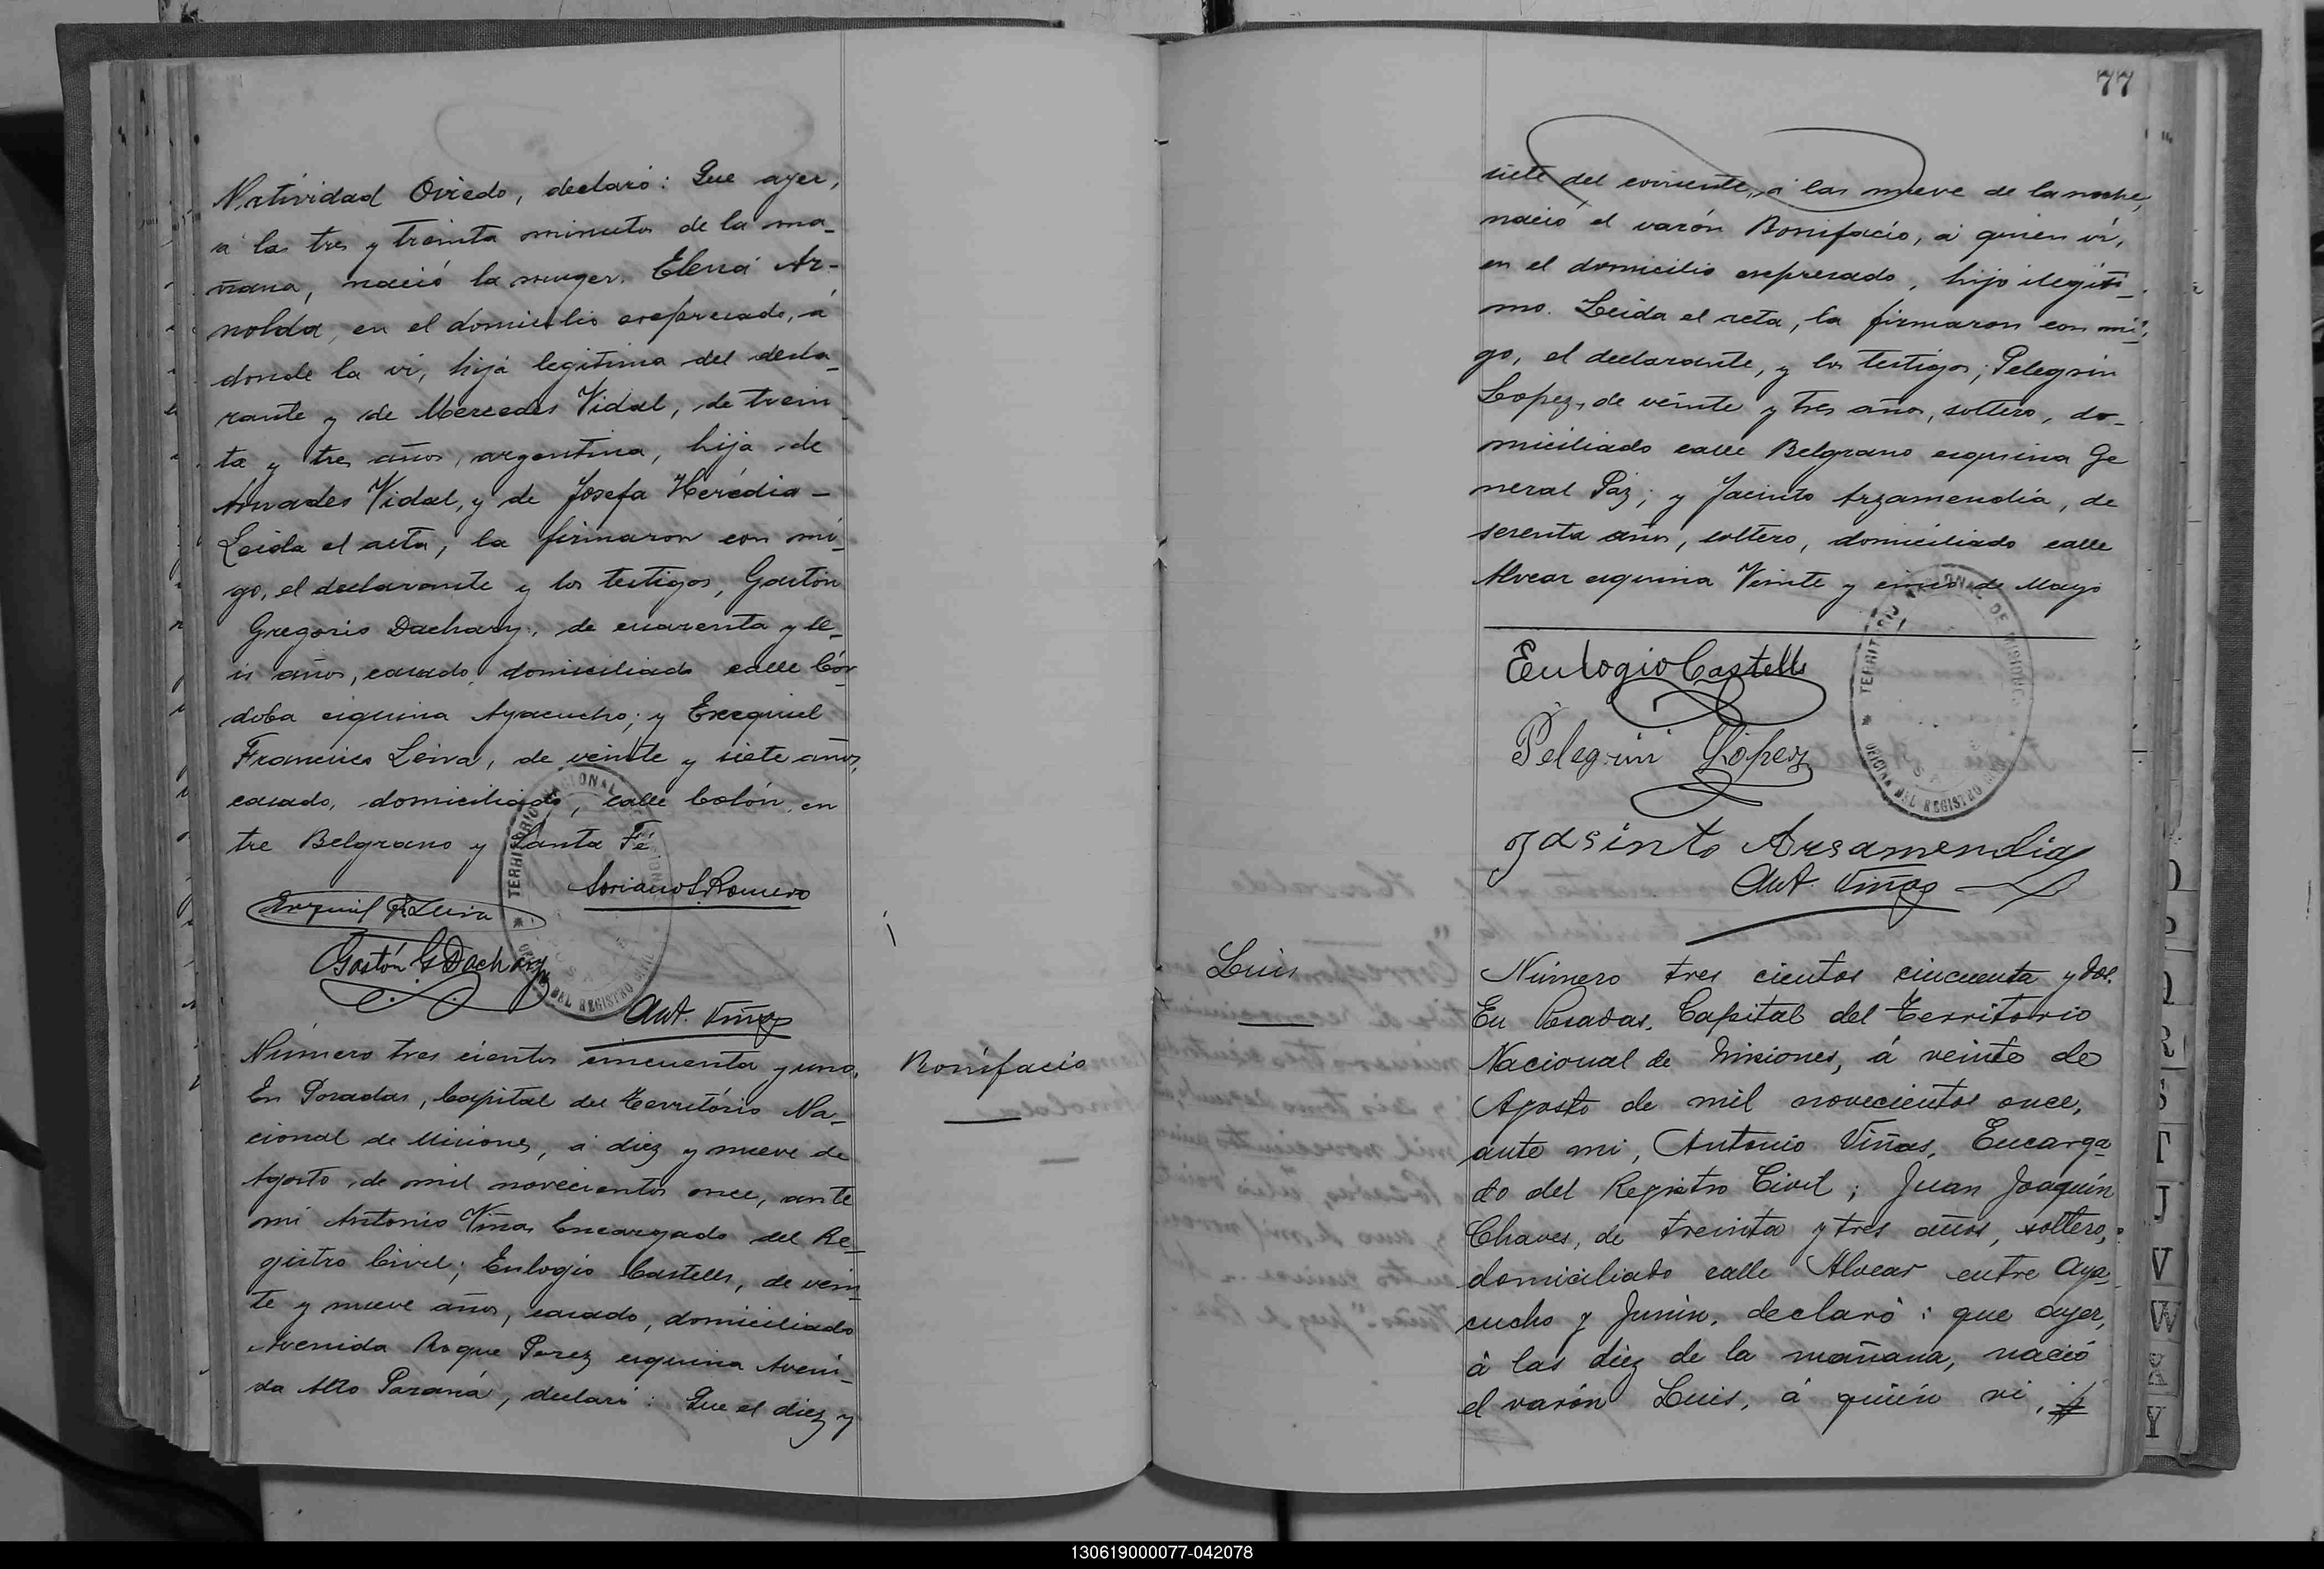 Natividad Oviedo, declaró: Que ayer,
á las tres y treinta minutos de la ma_
ñana, nació la muger Elena Ar-
nolda, en el domicilio expresado, á
donde la ví, hija legitima del decla_
rante y de Mercedes Vidal, de trein_
ta y tres años, argentina, hija de
Amades Vidal, y de Josefa Herédia _
Leida el acta, la firmaron con mi_
go, el declarante y los testigos, Gastón
Gregorio Dachary, de cuarenta y se_
is años, casado, domiciliado calle Cór_
doba esquina Ayacucho; y Exequiel
Francisco Leiva, de veinte y siete años,
casado, domiciliado, calle Colón, en
tre Belgrano y Santa Fé
Soriano S. Romero
Exequiel F. Leiva
Gastón G Dachary
Ant. Viñas
TERRITORIO NACIONAL DE MISIONES
OFICINA DEL REGISTRO CIVIL
Número tres cientos cincuenta y uno,
En Posadas, Capital del Território Na_
cional de Misiones, á diez y nueve de
Agosto, de mil novecientos once, ante
mi Antonio Viñas Encargado del Re_
gistro Civil; Eulogio Castells, de vein_
te y nueve años, casado, domiciliado
Avenida Roque Perez esquina Aveni_
da Alto Paraná, declaró: Que el diez y
Bonifacio
77
siete del corriente, á las nueve de la noche,
nació el varón Bonifacio, á quien ví,
en el domicilio expresado, hijo ilegiti_
mo. Leida el acta, la firmaron con mi_
go, el declarante, y los testigos; Pelegrin
Lopez, de veinte y tres años, soltero, do_
miciliado calle Belgrano esquina Ge
neral Paz; y Jacinto Arzamendia, de
sesenta años, soltero, domiciliado calle
Alvear esquina Veinte y cinco de Mayo
Eulogio Castells
Pelegrin Lopez
Jasinto Arsamendia
Ant. Viñas
TERRITORIO NACIONAL DE MISIONES
OFICINA DEL REGISTRO CIVIL
Luis
Número tres cientos cincuenta y dos.
En Posadas, Capital del Territorio
Nacional de Misiones, á veinte de
Agosto de mil novecientos once,
ante mi, Antonio Viñas, Encarga_
do del Registro Civil; Juan Joaquín
Chaves, de treinta y tres años, soltero,
domiciliado calle Alvear entre Aya_
cucho y Junin, declaró: que ayer,
á las diez de la mañana, nació
el varón Luis, á quién vi,
O
P
Q
R
S
T
J
V
W
X
Y
130619000077-042078